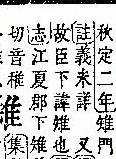 秋定二年雉門
註義未詳 又
故臣下諱雉也
志江夏郡下雉 集
切音稚